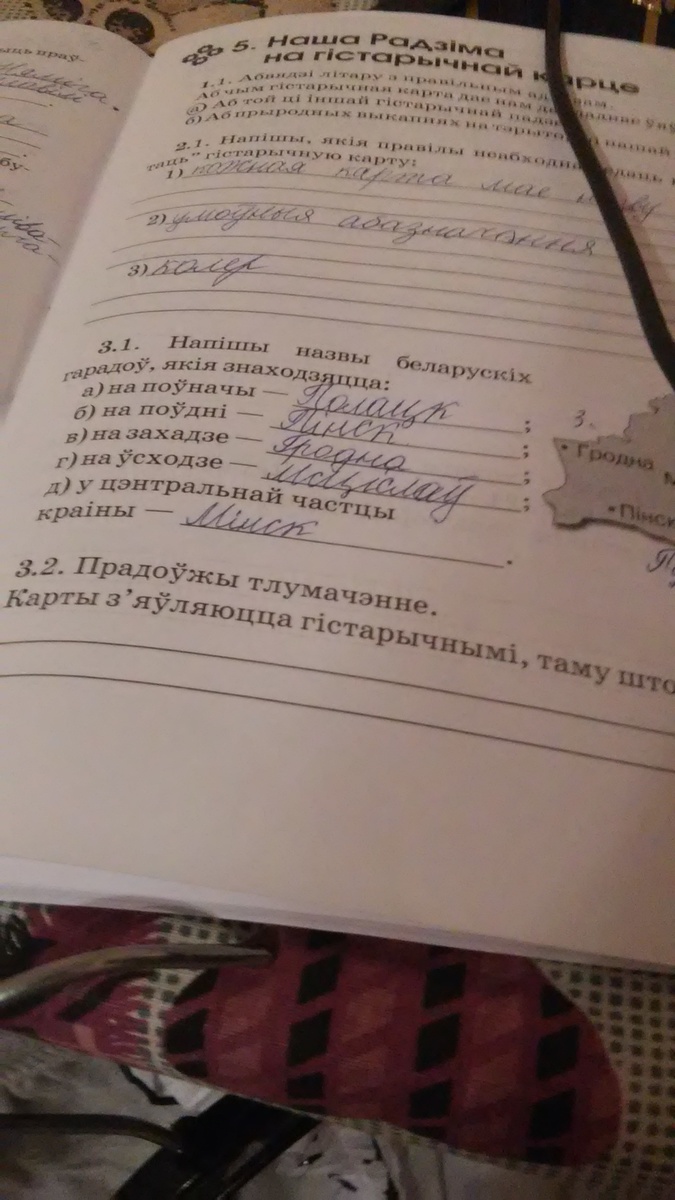 5. Наша Радзіма
на гістарычнай карце
1.1. Абвядзі літару з правільным
Аб чым гістарычная карта дае нам
а) Аб той ці іншай гістарычнай
б) Аб прыродных выкапнях на нашай
2.1. Напішы, якія правілы неабходна
таць" гістарычную карту:
1) кожная карта мае назву
2) умоўныя абазначэння
3) колер
3.1. Напішы назвы беларускіх
гарадоў, якія знаходзяцца:
а) на поўначы — Полацк ;
б) на поўдні — Пінск ;
в) на захадзе — Гродна ;
г) на ўсходзе — Мсціслаў ;
д) у цэнтральнай частцы
краіны — Мінск .
3.
Гродна
Пінск
3.2. Прадоўжы тлумачэнне.
Карты з'яўляюцца гістарычнымі, таму што